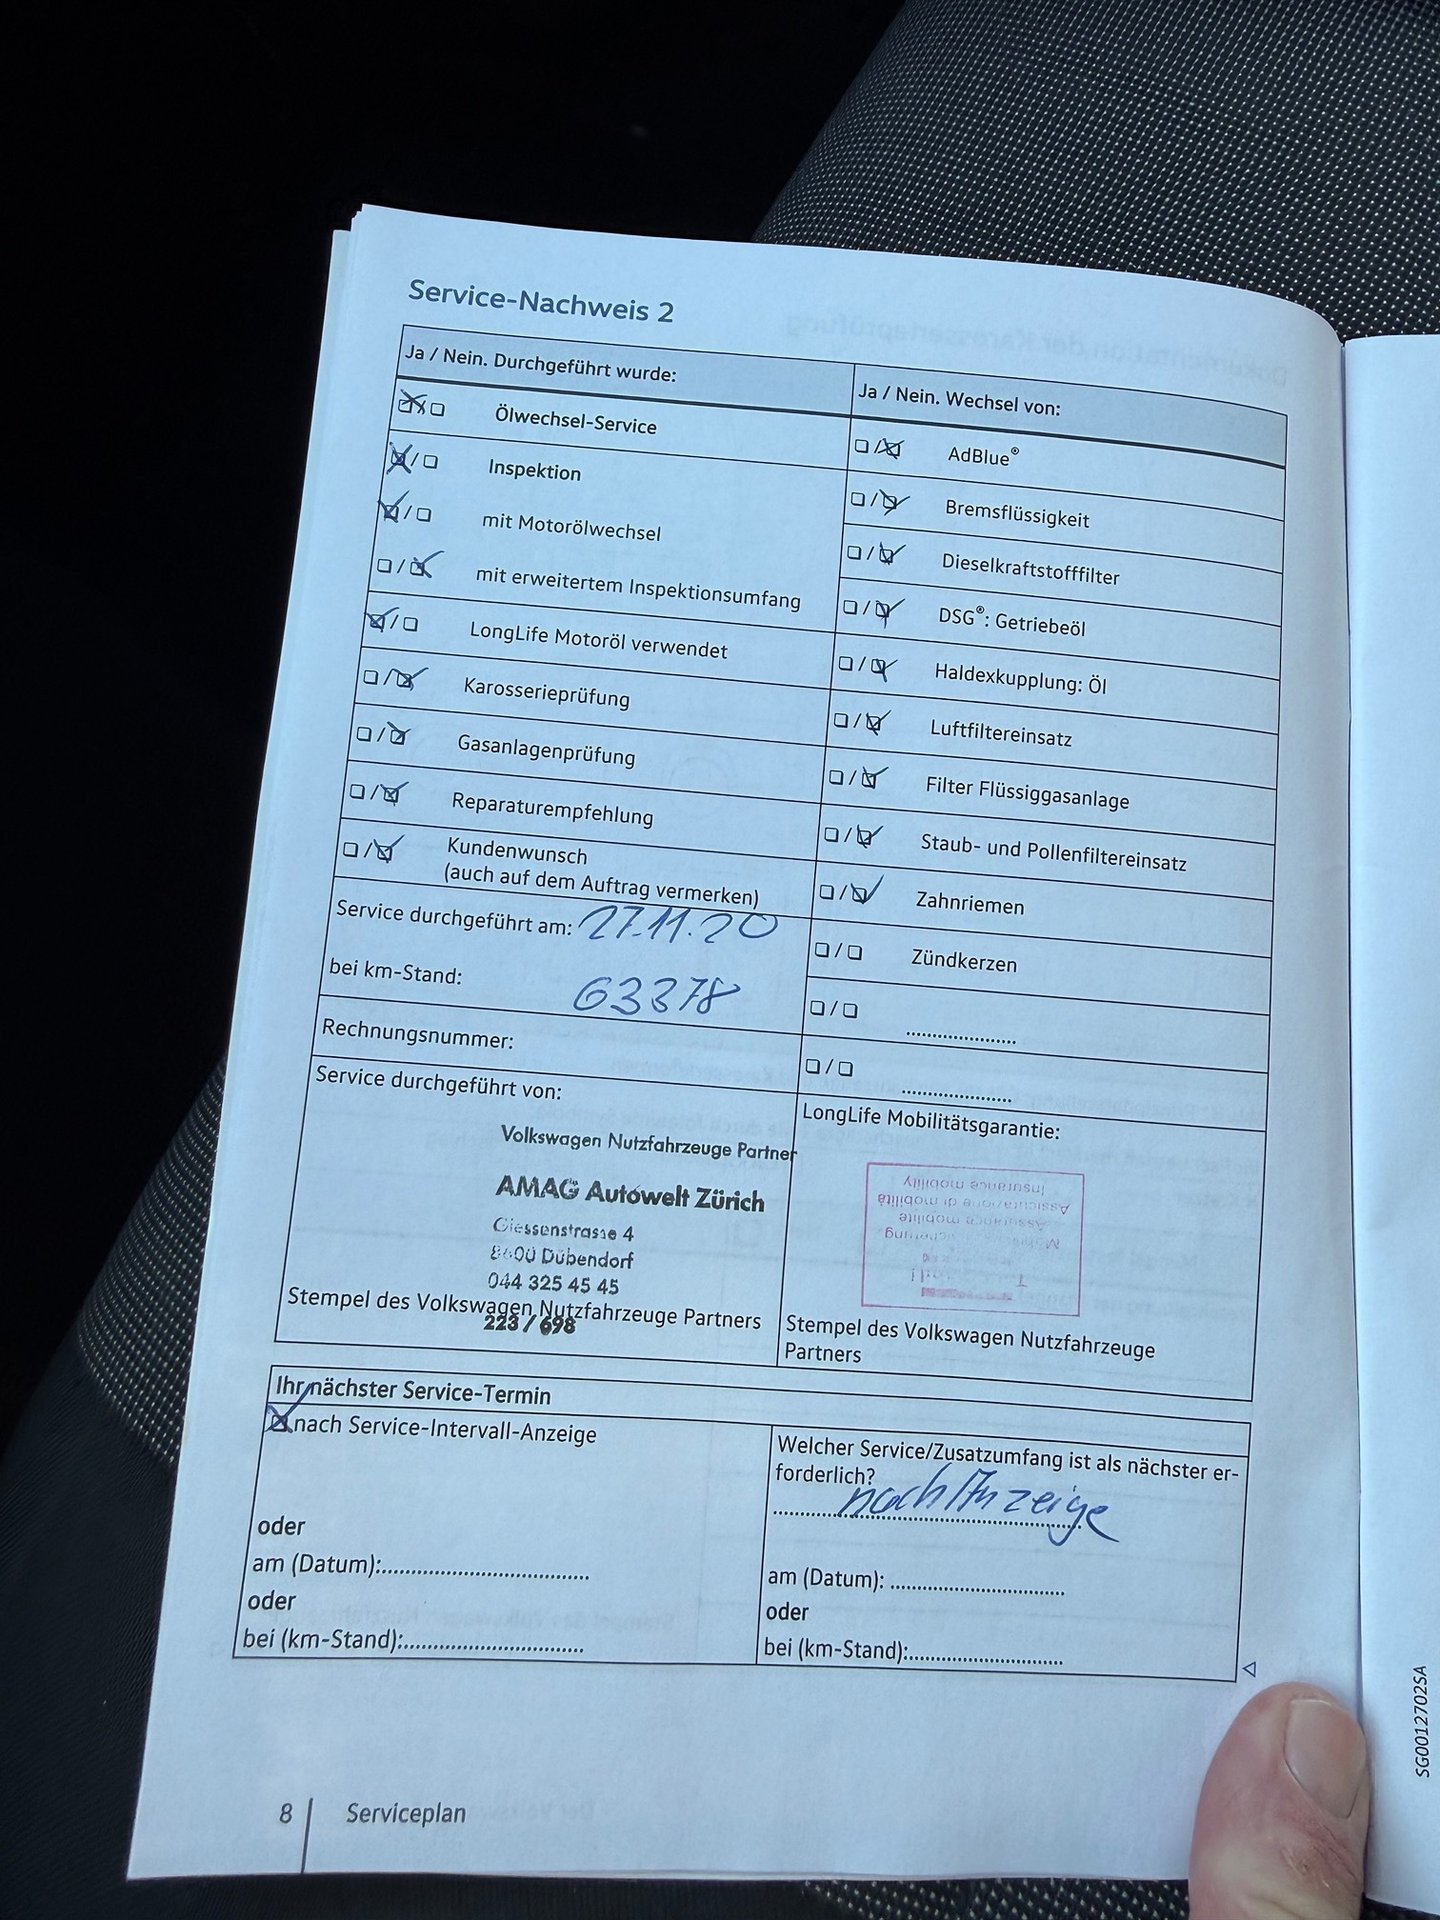 Service-Nachweis 2
Ja / Nein. Durchgeführt wurde:
Ölwechsel-Service
Inspektion
mit Motorölwechsel
mit erweitertem Inspektionsumfang
LongLife Motoröl verwendet
Karosserieprüfung
Gasanlagenprüfung
Reparaturempfehlung
Kundenwunsch
(auch auf dem Auftrag vermerken)
Service durchgeführt am: 27.11.20
bei km-Stand: 63378
Rechnungsnummer:
Service durchgeführt von:
Volkswagen Nutzfahrzeuge Partner
AMAG Autowelt Zürich
Giessenstrasse 4
8600 Dübendorf
044 325 45 45
Stempel des Volkswagen Nutzfahrzeuge Partners
223 / 698
Ja / Nein. Wechsel von:
AdBlue®
Bremsflüssigkeit
Dieselkraftstofffilter
DSG®: Getriebeöl
Haldexkupplung: Öl
Luftfiltereinsatz
Filter Flüssiggasanlage
Staub- und Pollenfiltereinsatz
Zahnriemen
Zündkerzen
LongLife Mobilitätsgarantie:
Insurance mobility
Assicurazione di mobilità
Assurance mobilité
Stempel des Volkswagen Nutzfahrzeuge
Partners
Ihr nächster Service-Termin
nach Service-Intervall-Anzeige
oder
am (Datum):
oder
bei (km-Stand):
Welcher Service/Zusatzumfang ist als nächster er-
forderlich?
nach Anzeige
am (Datum):
oder
bei (km-Stand):
8
Serviceplan
SG0012702SA